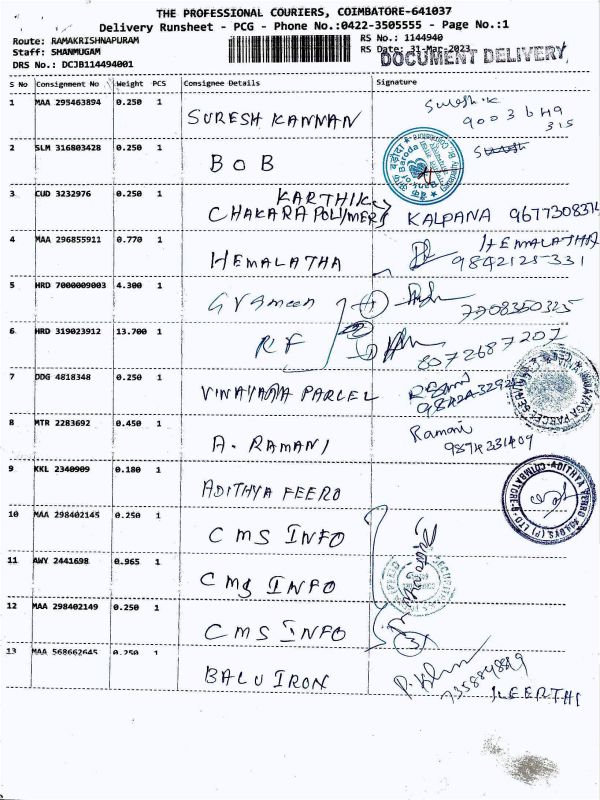 THE PROFESSIONAL COURIERS, COIMBATORE-641037
Delivery Runsheet - PCG - Phone No.:0422-3505555 - Page No.:1
Route: RAMAKRISHNAPURAM
Staff: SHANMUGAM
DRS No.: DCJB114494001
RS No.: 1144940
RS Date: 31-Mar-2023
DOCUMENT DELIVERY
S No Consignment No Weight PCS Consignee Details Signature
1 MAA 295463894 0.250 1 SURESH KANNAN Suresh.K
9003649
315
2 SLM 316803428 0.250 1 BOB Suresh
3 CUD 3232976 0.250 1 KARTHIK
CHAKARA POLIMERS KALPANA 9677308374
4 MAA 296855911 0.770 1 HEMALATHA HEMALATHA
9842125331
5 HRD 7000009003 4.300 1 7708350325
6 HRD 319023912 13.700 1 RF 8072687207
7 DDG 4818348 0.250 1 VINAYAGA PARCEL
8 MTR 2283692 0.450 1 A. RAMANI Ramani
9874231409
9 KKL 2340909 0.180 1 ADITHYA FEERO
10 MAA 298402145 0.250 1 CMS INFO
11 AWY 2441698 0.965 1 CMS INFO
12 MAA 298402149 0.250 1 CMS INFO
13 MAA 568662645 0.250 1 BALU IRON
KEERTHI